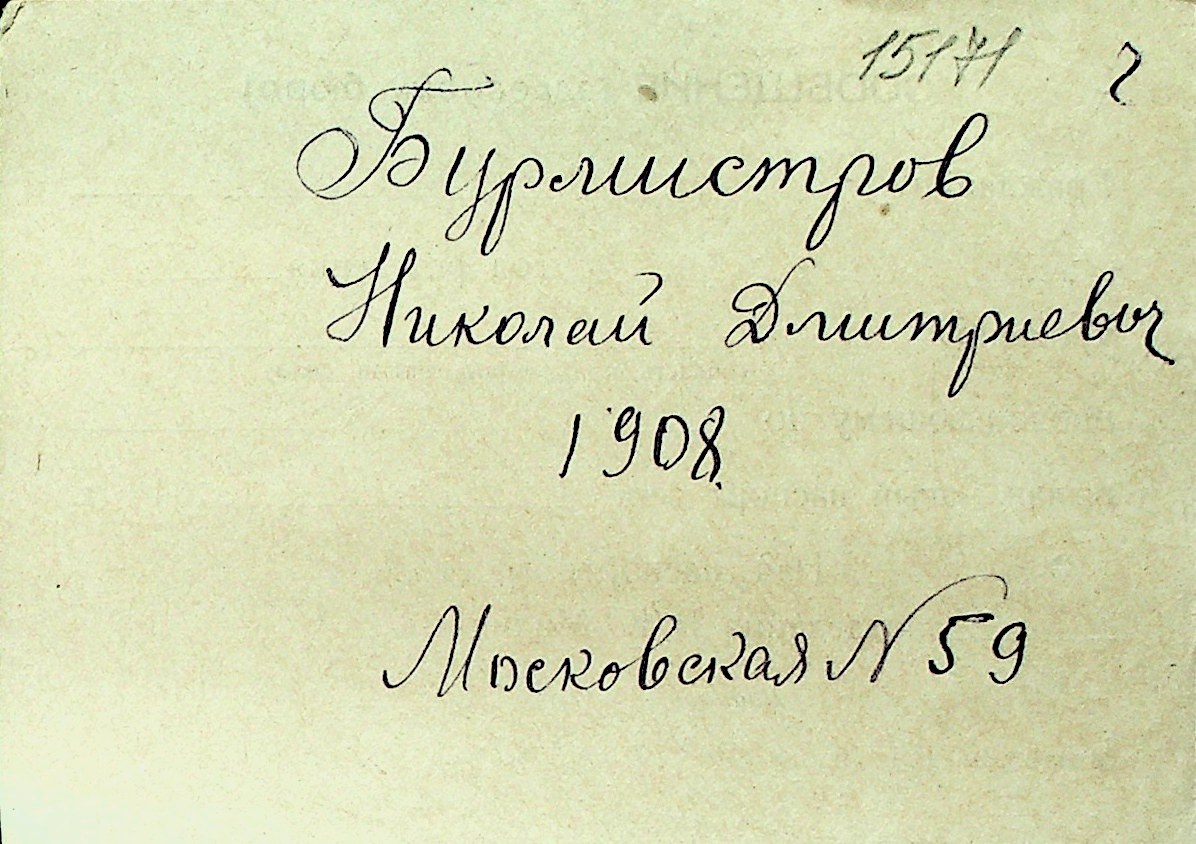 15171 2
Бурмистров
Николай Дмитриевич
1908.
Московская N 59